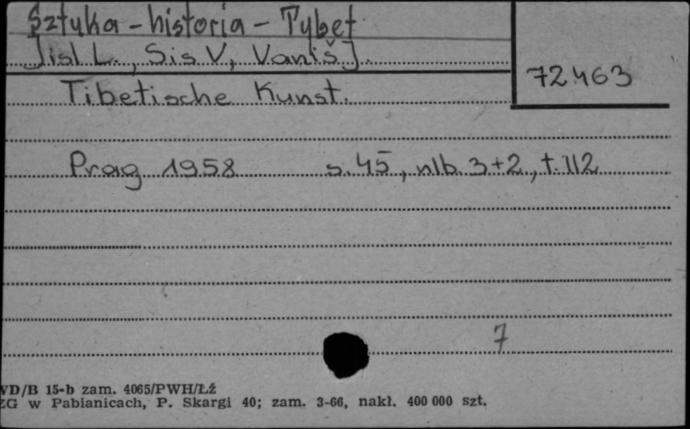 Sztuka - historia - Tybet
Jisl L., Sis V, Vaniš J.
72463
Tibetische Kunst.
Prag 1958 s. 45, nlb. 3+2, t. 112
7
WD/B 15-b zam. 4065/PWH/Łź
ZG w Pabianicach, P. Skargi 40; zam. 3-66, nakł. 400 000 szt.